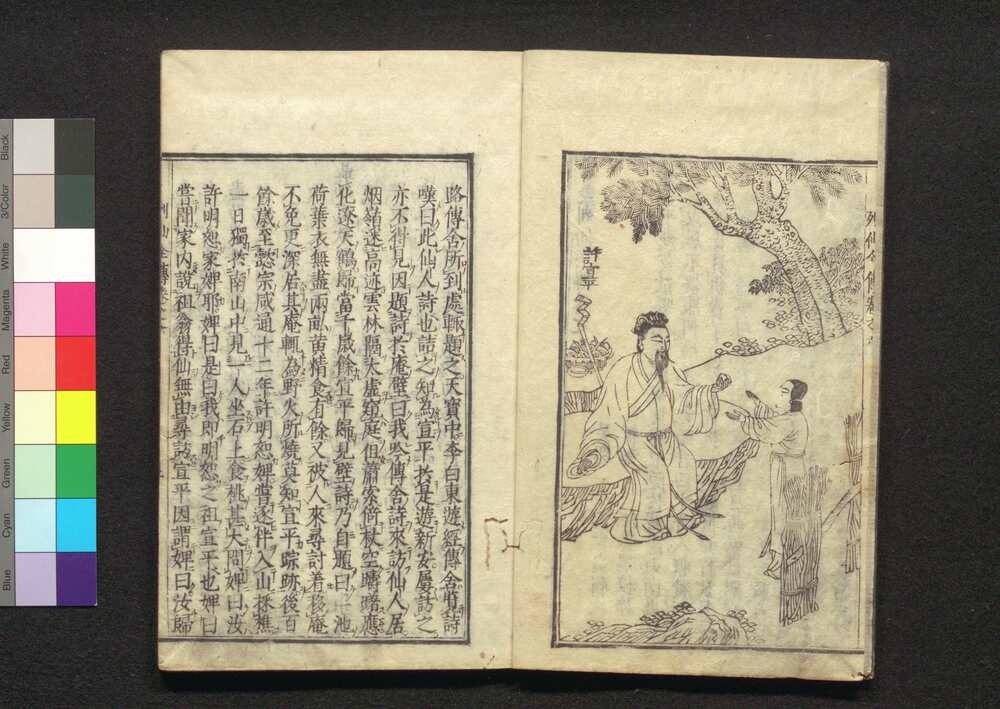 許宣平
路傳舍所到處輒題之天寶中李白東遊經傳舍覽詩
嘆曰此仙人詩也詰之知為宣平於是遊新安屢訪之
亦不得見因題詩於庵壁曰我吟傳舍詩來訪仙人居
烟嶺迷高迹雲林隔太虛窺庭但蕭索倚杖空躊躇應
化遼天鶴歸當千歲餘宣平歸見壁詩乃自題曰一池
荷葉衣無盡兩畝黃精食有餘又被人來尋討着移庵
不免更深居其庵輒為野火所燒莫知宣平踪跡後百
餘歲至懿宗咸通十二年許明恕婢嘗逐伴入山採樵
一日獨於南山中見一人坐石上食桃甚大問婢曰汝
許明恕家婢耶婢曰是曰我即明恕之祖宣平也婢曰
嘗聞家內說祖翁得仙無由尋訪宣平因謂婢曰汝歸
Black
3/Color
White
Magenta
Red
Yellow
Green
Cyan
Blue